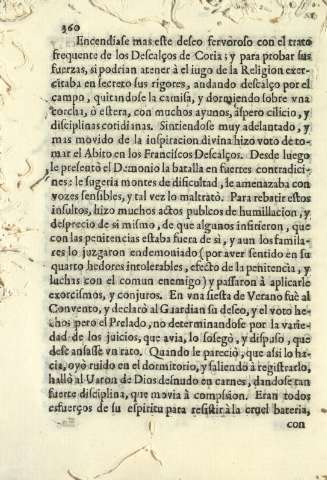 360
Encendiase mas este deseo fervoroso con el trato
frequente de los Descalços de Coria; y para probar sus
fuerzas, si podrian atener à el iugo de la Religion exer-
citaba en secreto sus rigores, andando descalço por el
campo, quitandose la camisa, y dormiendo sobre vna
corcha, ò estera, con muchos ayunos, áspero cilicio, y
disciplinas cotidianas. Sintiendose muy adelantado, y
mas movido de la inspiracion divina hizo voto de to-
mar el Abito en los Franciscos Descalços. Desde luego
le presentò el Demonio la batalla en fuertes contradicio-
nes: le sugeria montes de dificultad, le amenazaba con
vozes sensibles, y tal vez lo maltratò. Para rebatir estos
insultos, hizo muchos actos publcos de humillacion, y
desprecio de si mismo, de que algunos infirieron, que
con las penitencias estaba fuera de si, y aun los familia-
res lo juzgaron endemoniado (por aver sentido en su
quarto hedores intolerables, efecto de la penitencia, y
luchas con el comun enemigo) y passaron à aplicarle
exorcismos, y conjuros. En vna siesta de Verano fuè al
Convento, y declarò al Guardian su deseo, y el voto he-
chos pero el Prelado, no determinandose por la varie-
dad de los juicios, que avia, lo sosegò, y dispuso, que
descansasse vn rato. Quando le pareciò, que assi lo ha-
cia, oyò ruido en el dormitorio, y saliendo à registrarlo,
hallò al Varon de Dios desnudo en carnes, dandose tan
fuerte disciplina, que movia à compasion. Eran todos
esfuerços de su espiritu para resistir à la cruel bateria,
con